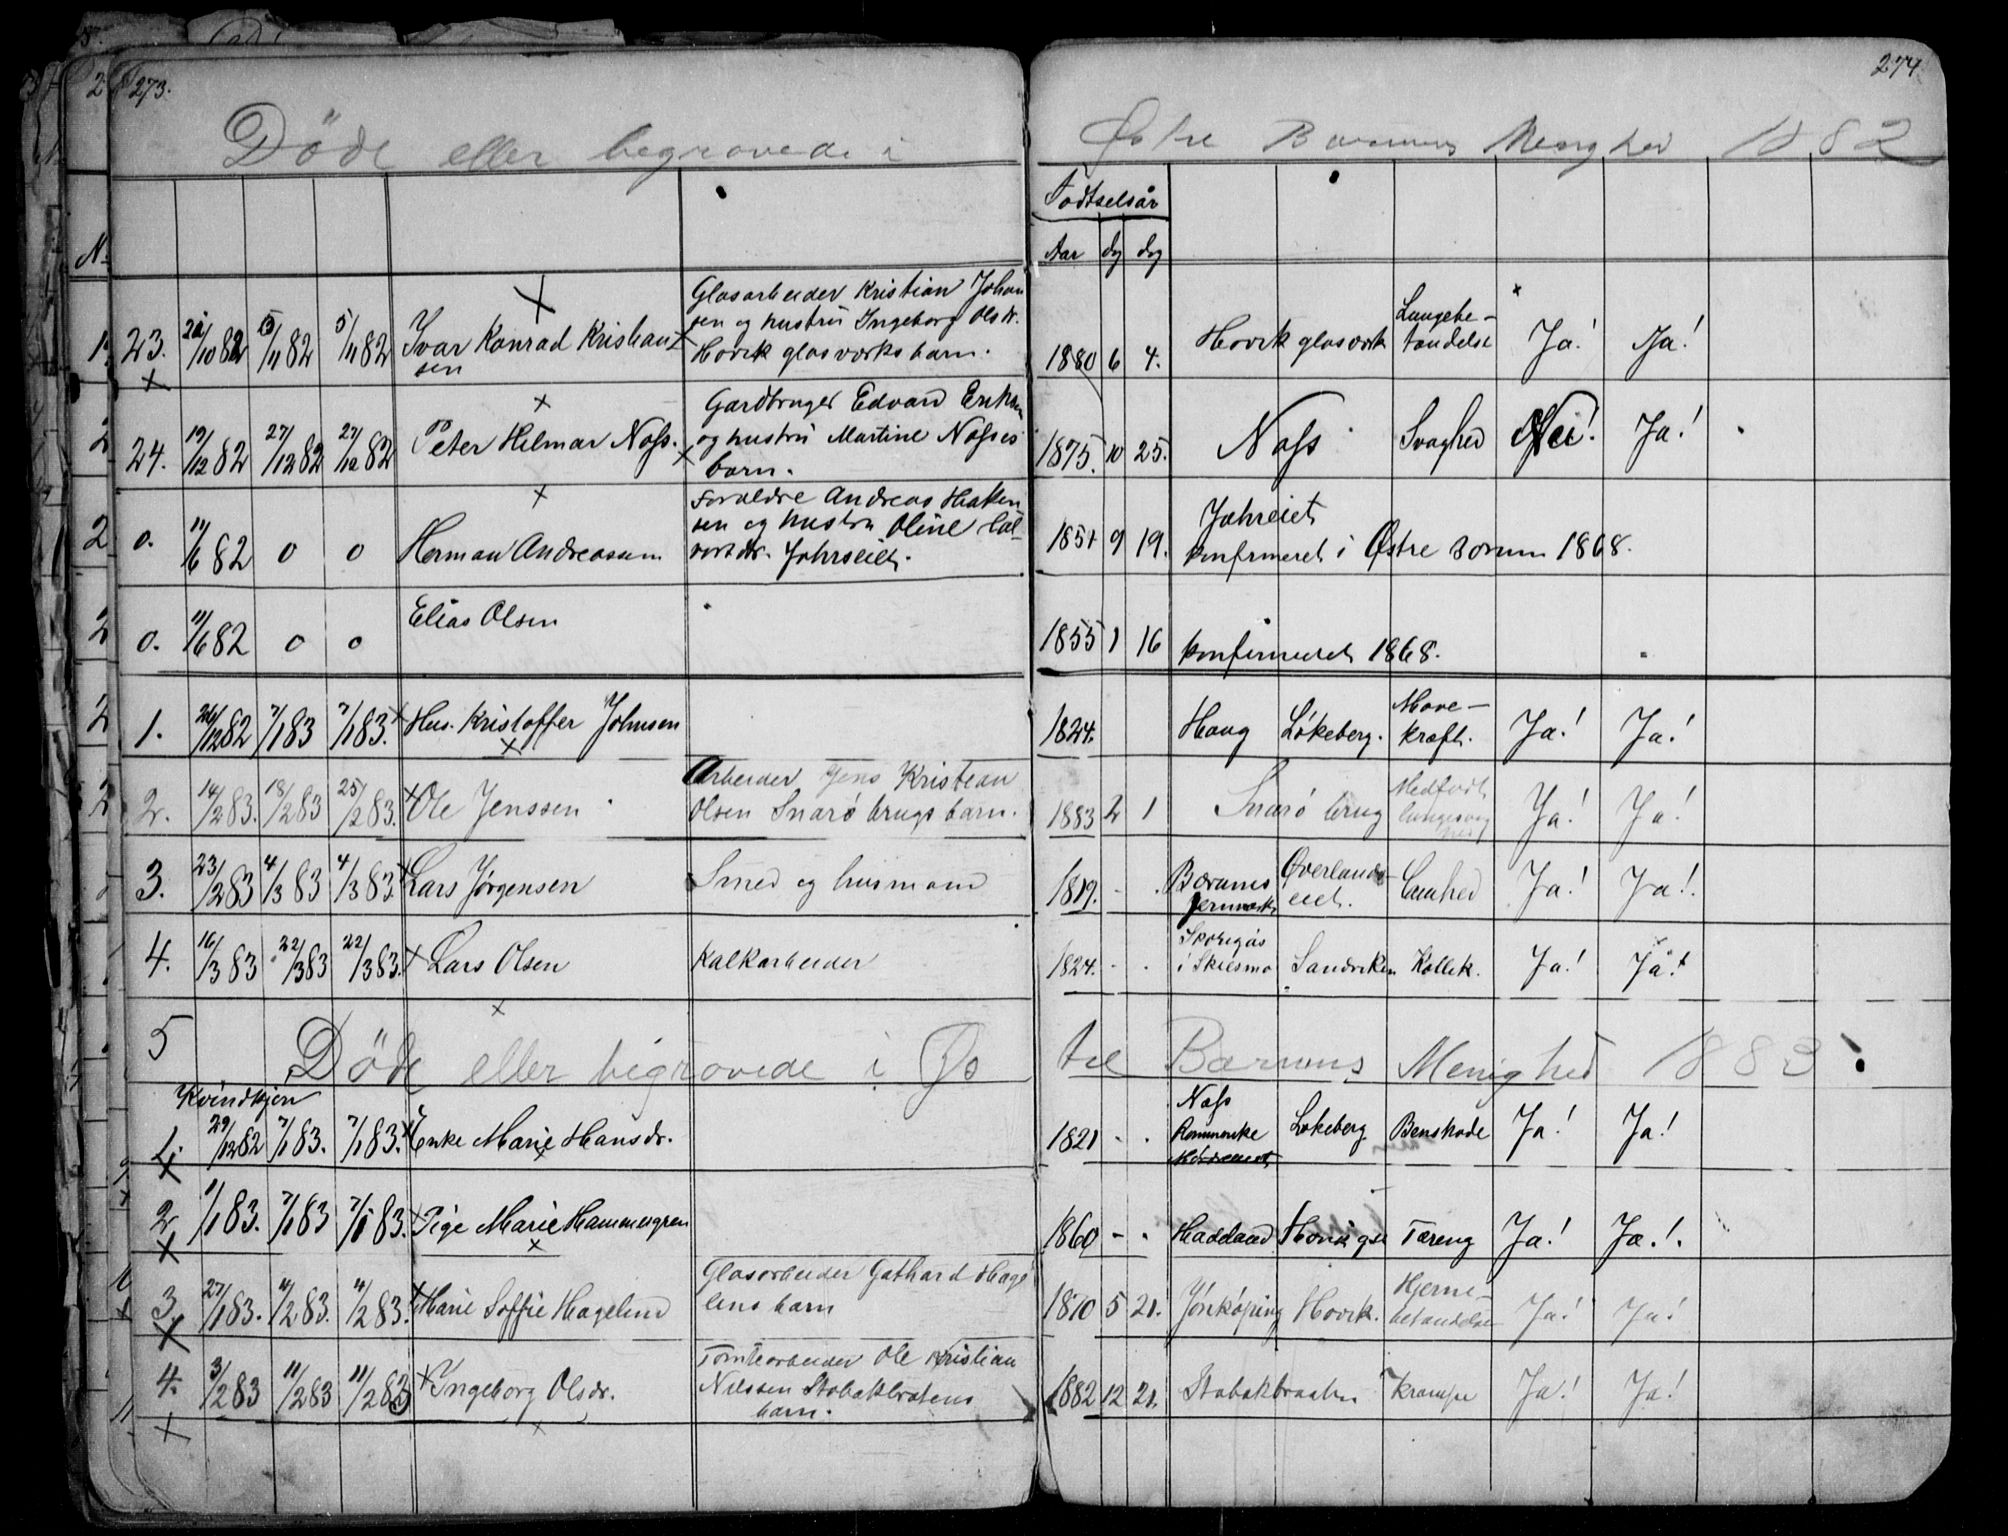 273.
274.
Döde eller begrovede i Østre Bærums Menghed 1882
Födtselsår
No
Aar dg dg
23. 28/10 82 5/11 82 5/11 82 Ivar Konrad Kristian
sen
Glasarbeider Kristian Johan
sen og hustru Ingeborg Olsdr.
Hovik glasværks barn.
1880 6 4. Hovik glasværk Lungebe-
tændelse Ja! Ja!
24. 19/12 82 27/12 82 27/12 82 Peter Hilmar Næss.
Gardbruger Edvard Eriksen
og hustru Martine Næsses
barn.
1875. 10 25. Næss Svaghed Nei! Ja!
0. 11/6 82 0 0 Herman Andreassen
Foreldre Andreas Haken
sen og hustru Oline Hal-
vorsdr. Jahrseiet.
1851 9 19. Jahreiet
konfirmeret i Østre Bærum 1868.
0. 11/6 82 0 0 Elias Olsen
1855 1 16 konfirmeret 1868.
1. 26/12 82 7/1 83 7/1 83. Hus. Kristoffer Johnsen
1824. Haug Løkeberg. Mave-
kræft. Ja! Ja!
2. 14/2 83. 18/2 83 25/2 83. Ole Jenssen
Arbeider Jens Kristian
Olsen Snarö brugs barn.
1883 2 1 Snarö brug Medfödt
lungesvag
hed Ja! Ja!
3. 23/2 83 4/3 83 4/3 83. Lars Jørgensen Smed og husmand
1819. - . Bærums
jernværk Øverlands
eiet. Ja! Ja!
4. 16/3 83 22/3 83 22/3 83. Lars Olsen Kalkarbeider
1824. - . i Skiesmo Sandviken Kollik. Ja! Ja!
5 Döde eller begrovede i Østre Bærums Menighed 1883
Kvindkjön
1. 29/12 82 7/1 83. 7/1 83. Enke Marie Hansdr.
1821 - . Næss
Løkeberg Benskade Ja! Ja!
2 1/1 83. 7/1 83 7/1 83. Pige Marie Hammergren
1860 - . Haddland Hovik gl Tæreng Ja! Ja!.
3. 27/1 83. 4/2 83. 4/2 83. Marie Soffie Hagelind
Glasarbeider Gothard Hage
lins barn
1880 5 21. Jönköping Hovik. Hjerne-
betændelse Ja! Ja!
4. 3/2 83 11/2 83 11/2 83 Ingeborg Olsdr.
Tomtearbeider Ole Kristian
Nilssen Stabækbråtens
barn.
1882 12 21. Stabækbraaten Krampe Ja! Ja!